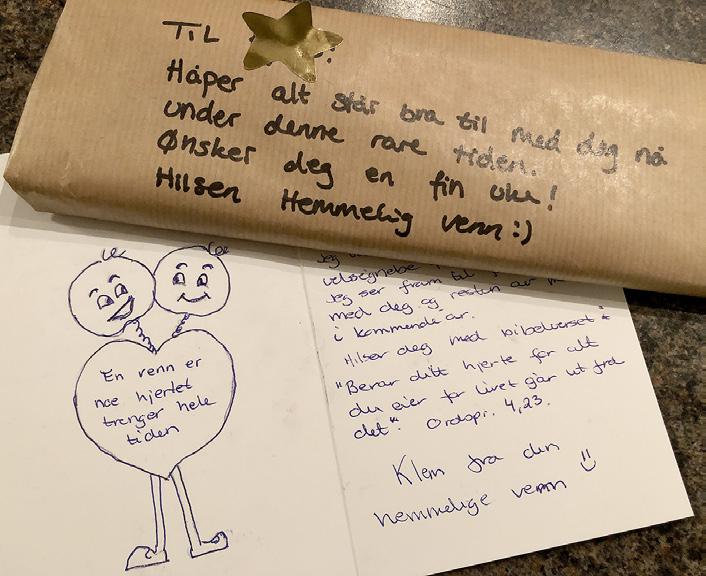 TIL
Håper alt står bra til med deg nå
under denne rare tiden.
Ønsker deg en fin uke!
Hilsen Hemmelig venn:)
En venn er
noe hjertet
trenger hele
tiden
Jeg
velsignelse
Jeg ser fram til
med deg og resten av
i kommende år.
Hilser deg med bibelverset:
"Bevar ditt hjerte for alt
du eier for livet går ut fra
det". Ordspr. 4,23.
Klem fra den
hemmelige venn